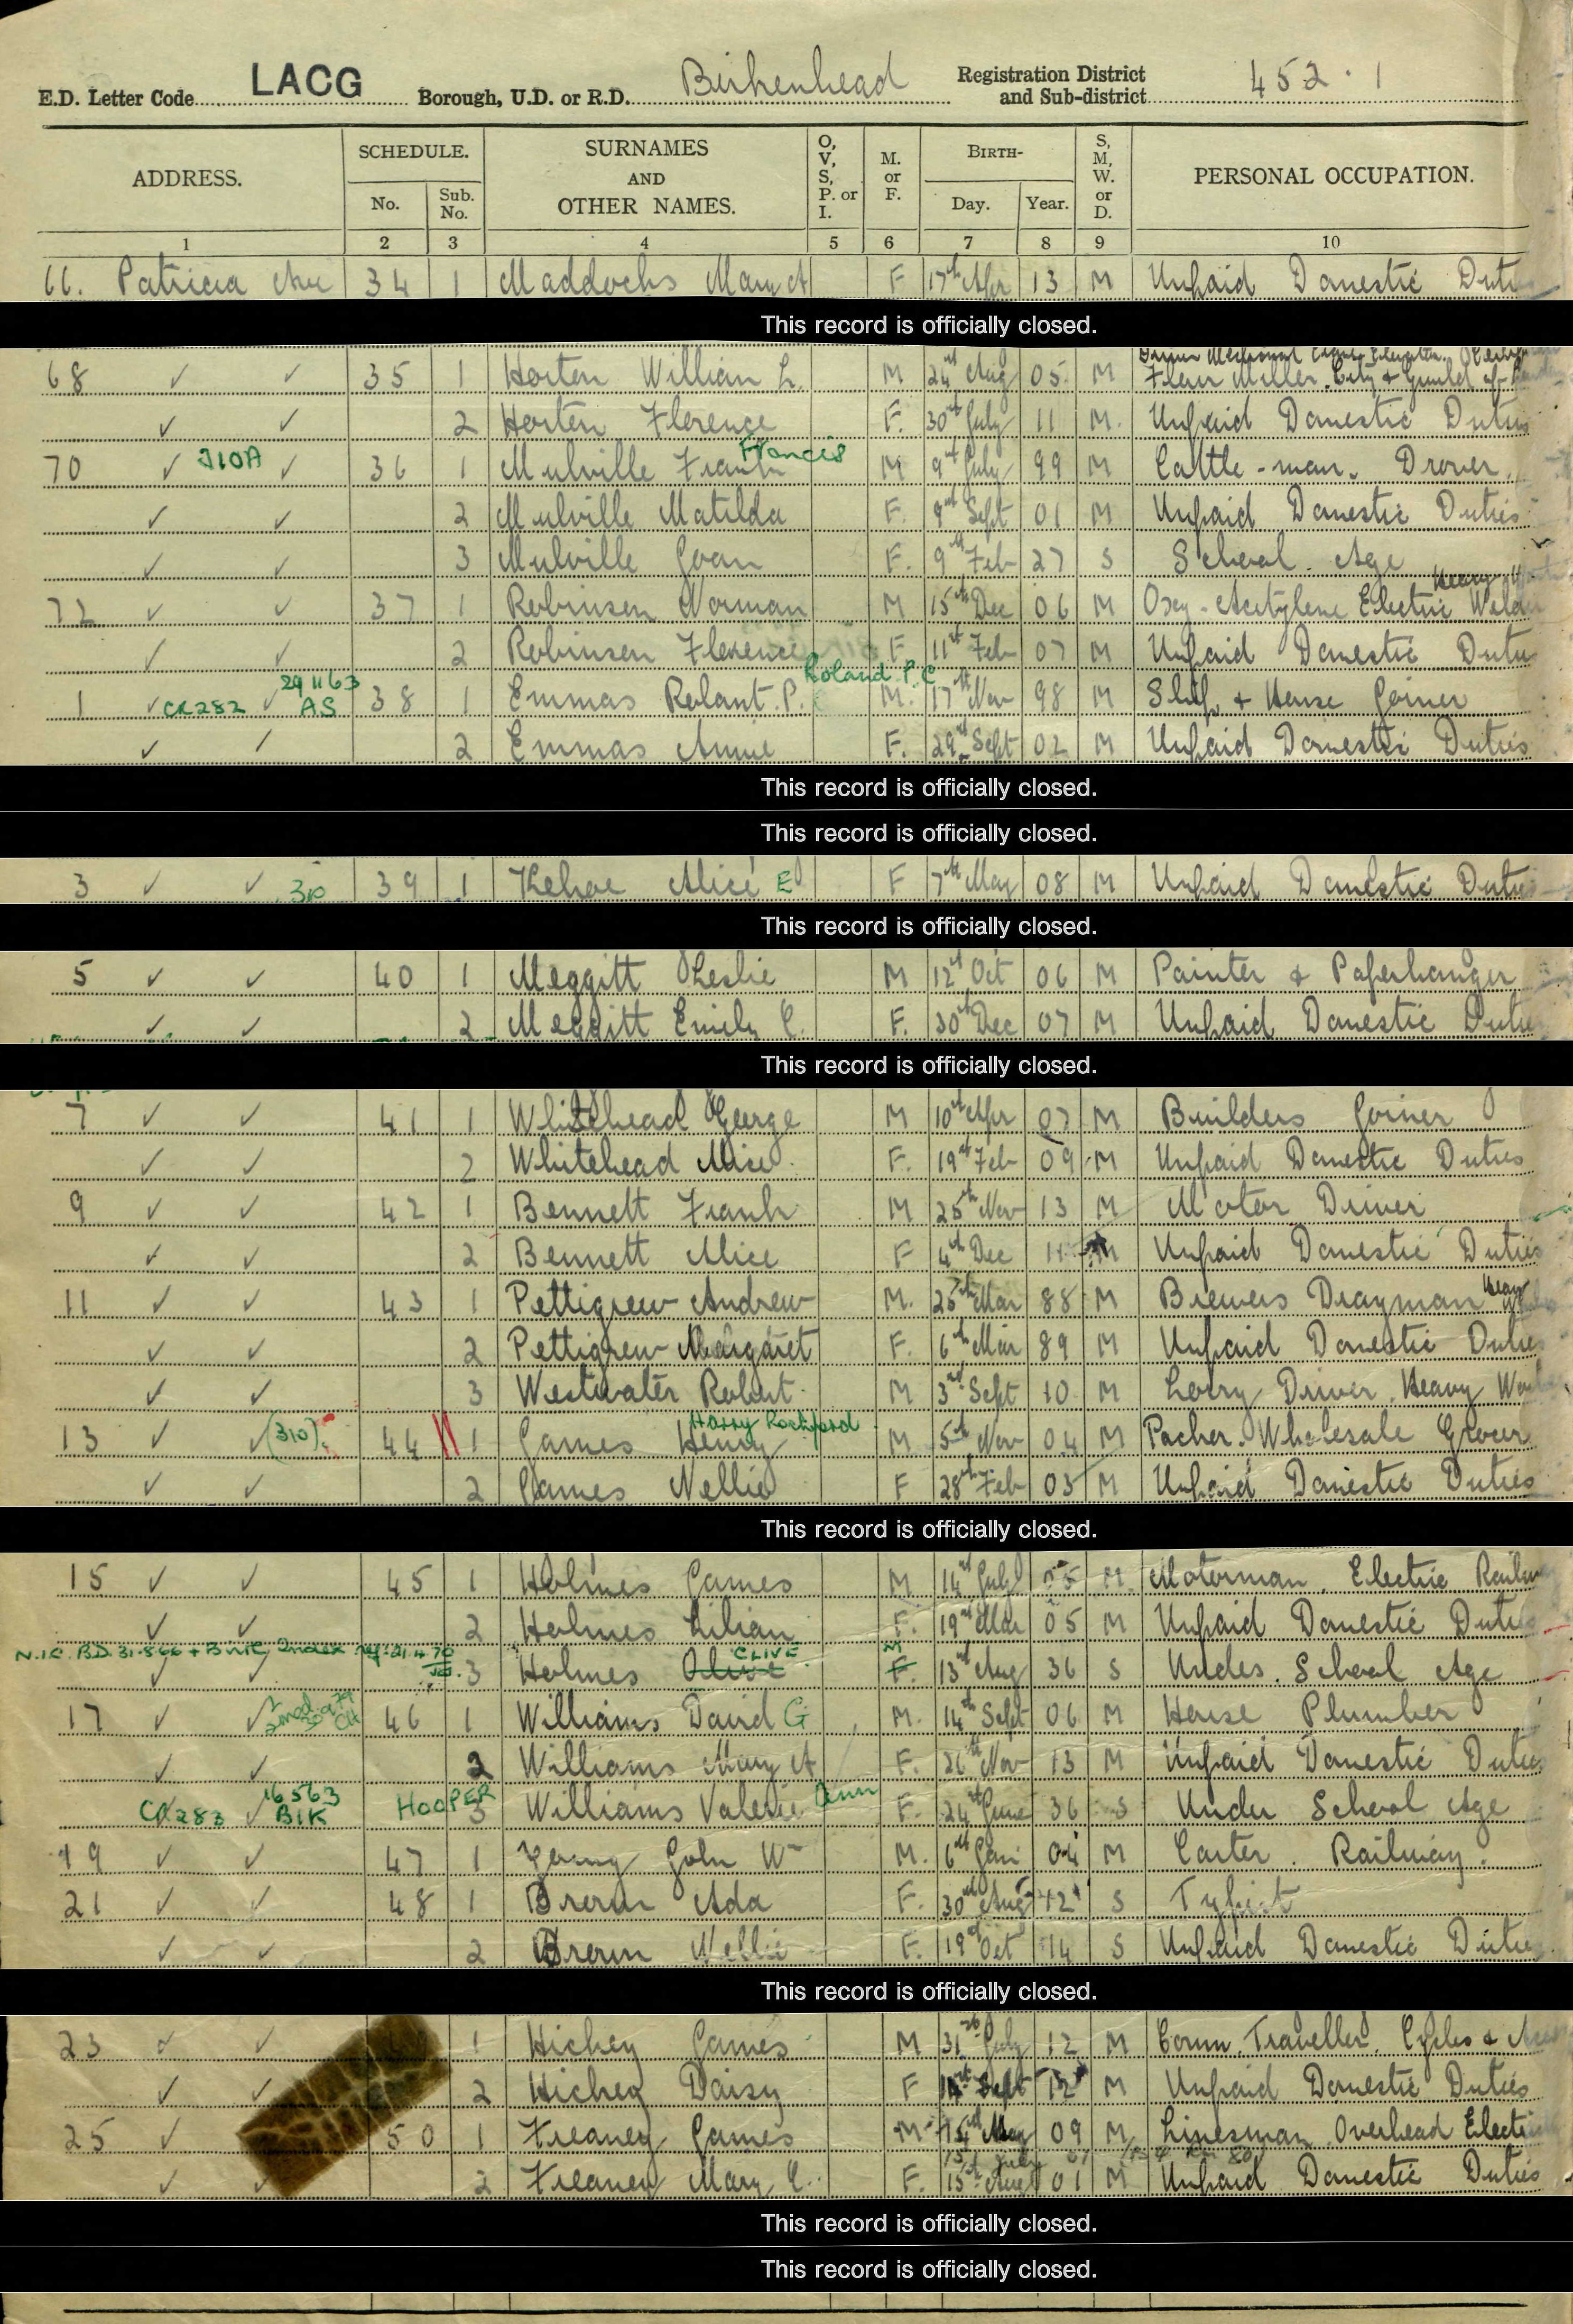 E.D. Letter Code LACG Borough, U.D. or R.D. Birkenhead Registration District and Sub-district 452.1
ADDRESS. SCHEDULE. No. Sub. No. SURNAMES AND OTHER NAMES. O, V, S, P. or I. M. or F. BIRTH- Day. Year. S, M, W. or D. PERSONAL OCCUPATION.
1 2 3 4 5 6 7 8 9 10
66. Patricia Ave 34 1 Maddocks Mary A F 17th Apr 13 M Unpaid Domestic Duti
This record is officially closed.
68 ✓ ✓ 35 1 Horten William L. M 24th Aug 05 M Flour Miller. City & Guilds of
✓ ✓ 2 Horten Florence F. 30th July 11 M. Unpaid Domestic Duties
Francis
70 ✓ J10A ✓ 36 1 Mulville Frank M 9th July 99 M Cattle-man. Drover.
✓ ✓ 2 Mulville Matilda F. 9th Sept 01 M Unpaid Domestic Duties
✓ ✓ 3 Mulville Joan F. 9th Feb 27 S School. Age
Heavy W
72 ✓ ✓ 37 1 Robinson Norman M 15th Dec 06 M Oxy-Acetylene Electric Welder
✓ ✓ 2 Robinson Florence F 11th Feb 07 M Unpaid Domestic Dutie
29 11 63 Roland P.C
1 ✓ CR282 ✓ AS 38 1 Emmas Rolant. P. M. 17th Nov 98 M Ship & House Joiner
✓ / 2 Emmas Annie F. 29th Sept 02 M Unpaid Domestic Duties
This record is officially closed.
This record is officially closed.
3 ✓ ✓ 310 39 1 Kehoe Alice E F 7th May 08 M Unpaid Domestic Duties
This record is officially closed.
5 ✓ ✓ 40 1 Meggitt Leslie M 12th Oct 06 M Painter & Paperhanger
✓ ✓ 2 Meggitt Emily C. F. 30th Dec 07 M Unpaid Domestic Dutie
This record is officially closed.
7 ✓ ✓ 41 1 Whitehead George M 10th Apr 07 M Builders Joiner
✓ ✓ 2 Whitehead Alice F. 19th Feb 09 M Unpaid Domestic Duties
9 ✓ ✓ 42 1 Bennett Frank M 25th Nov 13 M Motor Driver
✓ ✓ 2 Bennett Alice F 4th Dec 11 M Unpaid Domestic Duties
11 ✓ ✓ 43 1 Pettigrew Andrew M. 25th Mar 88 M Brewers Drayman Heavy
✓ ✓ 2 Pettigrew Margaret F. 6th Mar 89 M Unpaid Domestic Duties
✓ ✓ 3 Westwater Robert. M 3rd Sept 10 M Lorry Driver. Heavy Wor
Harry Rochford
13 ✓ ✓ (310) 44 1 James Henry M 5th Nov 04 M Packer. Wholesale Grocer
✓ ✓ 2 James Nellie F 28th Feb 03 M Unpaid Domestic Duties
This record is officially closed.
15 ✓ ✓ 45 1 Holmes James M 14th July 05 M. Motorman. Electric Railw
✓ ✓ 2 Holmes Lilian F. 19th Mar 05 M Unpaid Domestic Duties
N.I.C. B.D. 31.5.66 + BWIC Index ref. 21.4.70 CLIVE M
✓ ✓ 3 Holmes Olive F. 13th Aug 36 S Under. School Age
17 ✓ ✓ 46 1 Williams David G M. 14th Sept 06 M House Plumber
✓ ✓ 2 Williams Mary A F. 26th Nov 13 M Unpaid Domestic Duties
16563 Ann
CR283 ✓ B1K HOOPER 3 Williams Valerie F. 24th June 36 S Under School Age
19 ✓ ✓ 47 1 Young John Wm M. 6th Jan 04 M Carter. Railway.
21 ✓ ✓ 48 1 Brown Ada F. 30th Aug 12 S Typist
✓ ✓ 2 Brown Nellie F. 19th Oct 14 S Unpaid Domestic Duties
This record is officially closed.
23 ✓ ✓ 1 Hickey James M 31st July 12 M Comm. Traveller. Cycles &
✓ ✓ 2 Hickey Daisy F Sept 12 M Unpaid Domestic Duties
25 ✓ 50 1 Freaney James M 15th May 09 M Linesman Overhead Electri
✓ ✓ 2 Freaney Mary C. F. 15th Aug 01 M Unpaid Domestic Duties
This record is officially closed.
This record is officially closed.